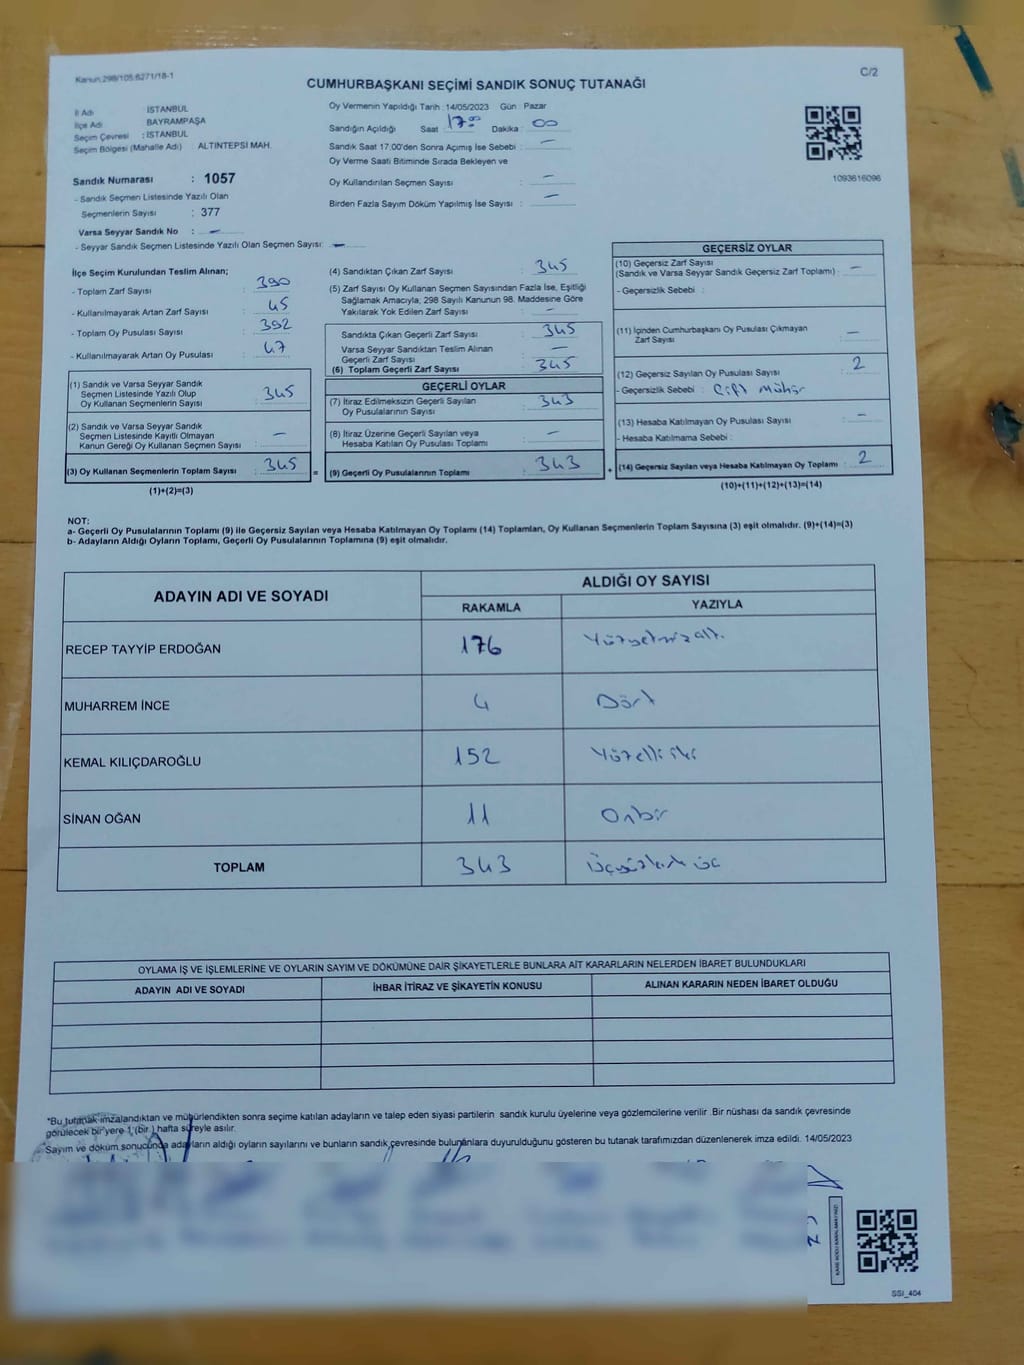 Kanun:298/105,6271/18-1
C/2
CUMHURBAŞKANI SEÇİMİ SANDIK SONUÇ TUTANAĞI
İl Adı : İSTANBUL
İlçe Adı : BAYRAMPAŞA
Seçim Çevresi : İSTANBUL
Seçim Bölgesi (Mahalle Adı) : ALTINTEPSİ MAH.
Sandık Numarası : 1057
- Sandık Seçmen Listesinde Yazılı Olan
Seçmenlerin Sayısı : 377
Varsa Seyyar Sandık No : —
- Seyyar Sandık Seçmen Listesinde Yazılı Olan Seçmen Sayısı: —
Oy Vermenin Yapıldığı Tarih : 14/05/2023 Gün : Pazar
Sandığın Açıldığı Saat : 17:00 Dakika : 00
Sandık Saat 17:00'den Sonra Açımış İse Sebebi : —
Oy Verme Saati Bitiminde Sırada Bekleyen ve
Oy Kullandırılan Seçmen Sayısı : —
Birden Fazla Sayım Döküm Yapılmış İse Sayısı : —
1093616096
İlçe Seçim Kurulundan Teslim Alınan;
- Toplam Zarf Sayısı : 390
- Kullanılmayarak Artan Zarf Sayısı : 45
- Toplam Oy Pusulası Sayısı : 392
- Kullanılmayarak Artan Oy Pusulası : 47
(1) Sandık ve Varsa Seyyar Sandık
Seçmen Listesinde Yazılı Olup
Oy Kullanan Seçmenlerin Sayısı : 345
(2) Sandık ve Varsa Seyyar Sandık
Seçmen Listesinde Kayıtlı Olmayan
Kanun Gereği Oy Kullanan Seçmen Sayısı : —
(3) Oy Kullanan Seçmenlerin Toplam Sayısı : 345 =
(1)+(2)=(3)
(4) Sandıktan Çıkan Zarf Sayısı : 345
(5) Zarf Sayısı Oy Kullanan Seçmen Sayısından Fazla İse, Eşitliği
Sağlamak Amacıyla, 298 Sayılı Kanunun 98. Maddesine Göre
Yakılarak Yok Edilen Zarf Sayısı : —
Sandıkta Çıkan Geçerli Zarf Sayısı : 345
Varsa Seyyar Sandıktan Teslim Alınan
Geçerli Zarf Sayısı : —
(6) Toplam Geçerli Zarf Sayısı : 345
GEÇERLİ OYLAR
(7) İtiraz Edilmeksizin Geçerli Sayılan
Oy Pusulalarının Sayısı : 343
(8) İtiraz Üzerine Geçerli Sayılan veya
Hesaba Katılan Oy Pusulası Toplamı : —
(9) Geçerli Oy Pusulalarının Toplamı : 343 +
GEÇERSİZ OYLAR
(10) Geçersiz Zarf Sayısı
(Sandık ve Varsa Seyyar Sandık Geçersiz Zarf Toplamı) : —
- Geçersizlik Sebebi :
(11) İçinden Cumhurbaşkanı Oy Pusulası Çıkmayan
Zarf Sayısı : —
(12) Geçersiz Sayılan Oy Pusulası Sayısı : 2
- Geçersizlik Sebebi : Çift Mühür
(13) Hesaba Katılmayan Oy Pusulası Sayısı : —
- Hesaba Katılmama Sebebi :
(14) Geçersiz Sayılan veya Hesaba Katılmayan Oy Toplamı : 2
(10)+(11)+(12)+(13)=(14)
NOT:
a- Geçerli Oy Pusulalarının Toplamı (9) ile Geçersiz Sayılan veya Hesaba Katılmayan Oy Toplamı (14) Toplamları, Oy Kullanan Seçmenlerin Toplam Sayısına (3) eşit olmalıdır. (9)+(14)=(3)
b- Adayların Aldığı Oyların Toplamı, Geçerli Oy Pusulalarının Toplamına (9) eşit olmalıdır.
ADAYIN ADI VE SOYADI ALDIĞI OY SAYISI
RAKAMLA YAZIYLA
RECEP TAYYİP ERDOĞAN 176 Yüzyetmişaltı
MUHARREM İNCE 4 Dört
KEMAL KILIÇDAROĞLU 152 Yüzelliiki
SİNAN OĞAN 11 Onbir
TOPLAM 343 Üçyüzkırk üç
OYLAMA İŞ VE İŞLEMLERİNE VE OYLARIN SAYIM VE DÖKÜMÜNE DAİR ŞİKAYETLERLE BUNLARA AİT KARARLARIN NELERDEN İBARET BULUNDUKLARI
ADAYIN ADI VE SOYADI İHBAR İTİRAZ VE ŞİKAYETİN KONUSU ALINAN KARARIN NEDEN İBARET OLDUĞU
*Bu tutanak imzalandıktan ve mühürlendikten sonra seçime katılan adayların ve talep eden siyasi partilerin sandık kurulu üyelerine veya gözlemcilerine verilir .Bir nüshası da sandık çevresinde
görülecek bir yere 1 (bir ) hafta süreyle asılır.
Sayım ve döküm sonucunda adayların aldığı oyların sayılarını ve bunların sandık çevresinde bulunanlara duyurulduğunu gösteren bu tutanak tarafımızdan düzenlenerek imza edildi. 14/05/2023
KARE KODU KARALAMAYINIZ!
SSI_404